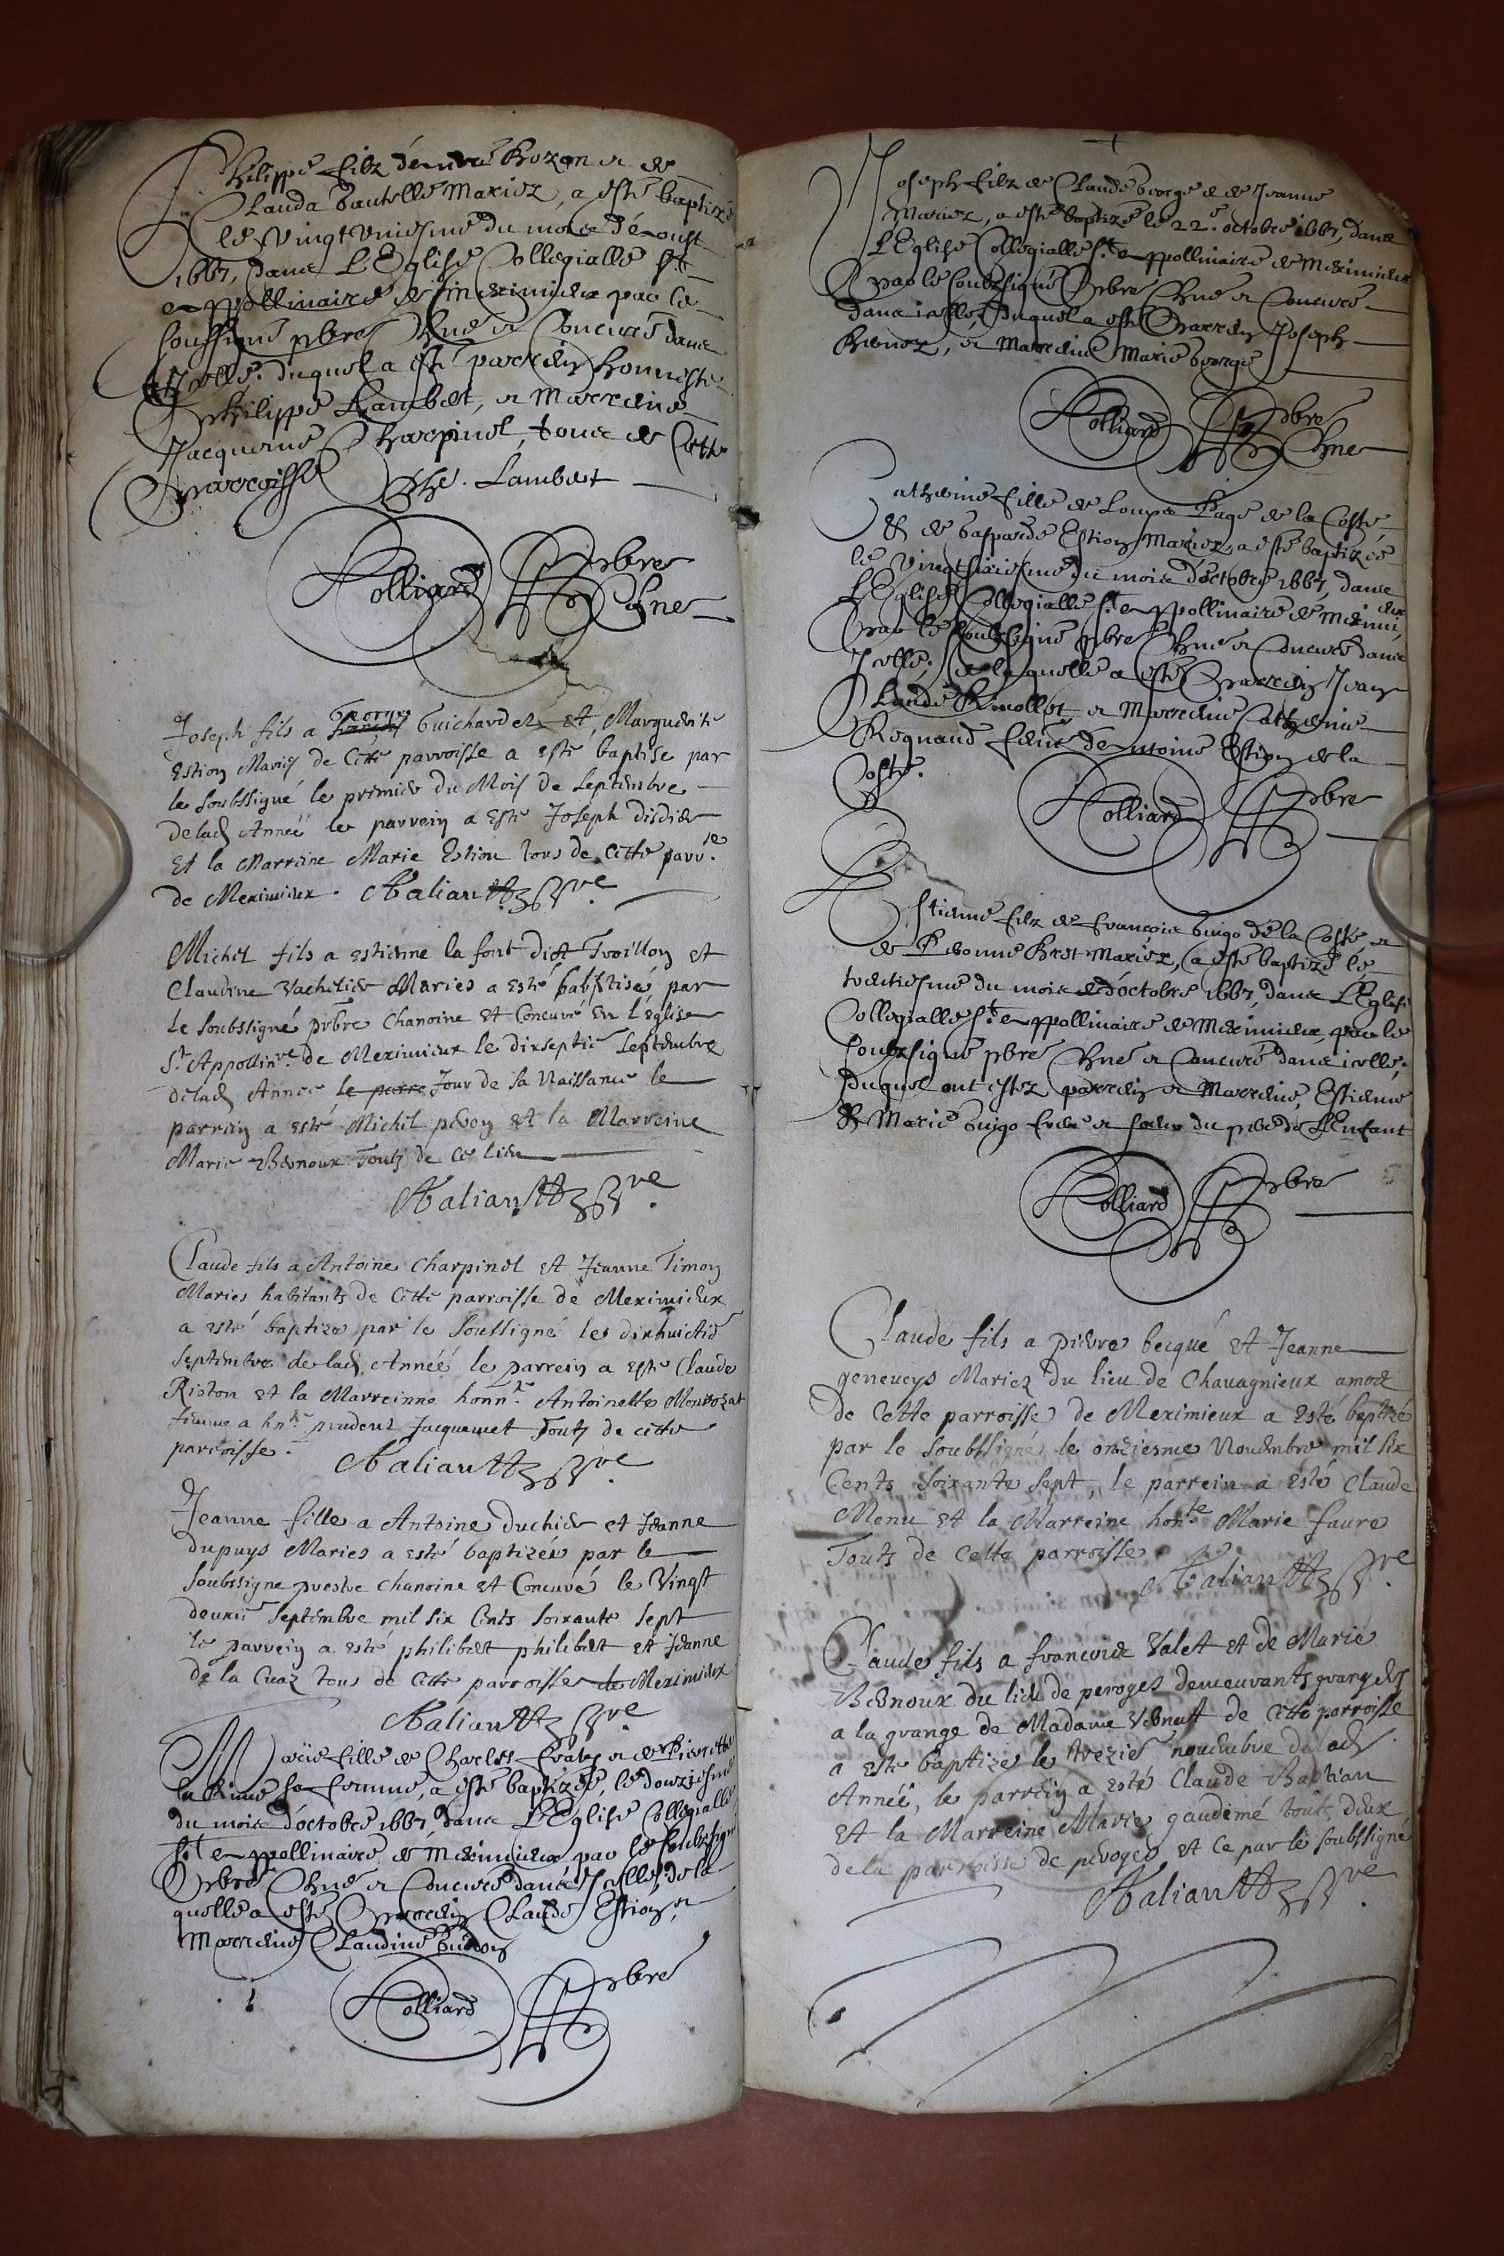 Philippe filz d'enn Rozan et de
Clauda bautelle Mariez, a esté baptizé
le Vingt uniesme du mois d'Aoust
1667, dans L'Eglise Collegialle St
Appollinaire de Meximieux par le
soussigné pbre Chne et Concuré dans
Icelle. duquel a esté parrein honneste
Philippe Lambert, et Marreine
Jacqueme Charpinel, tous de Cette
parroisse Phe. Lambert
Rolliard Pbre
Chne
Joseph fils a George Guichard et Marguerite
Estion Maries de Cette parroisse a esté baptisé par
le soubssigné le premier du Mois de Septembre
de lad Année le parrein a Esté Joseph didier
Et la Marreine Marie Estion tous de Cette parrse
de Meximieux.
Michel fils a estienne la font dict et
Claudine Vachelier Maries a esté babstisé par
le soubssigné prbre Chanoine et Concuré En l'église
St Appollinre de Meximieux le dixseptie Septembre
de lad Année le parre Jour de sa Naissance le
parrein a esté Michel peson et la Marreine
Marie Bernoux Touts de Ce lieu
Claude fils a Antoine Charpinel et Jeanne Timon
Maries habitants de Cette parroisse de Meximieux
a esté baptizé par le soussigné le dixhuictie
Septembre de lad Année le parrein a esté Claude
Riston et la Marreinne honnte Antoinette
femme a hnte prudent Jacquemet Touts de cette
parroisse.
Jeanne fille a Antoine duchier et Jeanne
dupuys Maries a esté baptizée par le
soubssigne prestre chanoine et Concuré le Vingt
deuxie Septembre mil six Cents soixante sept
le parrein a esté philibert philibert et Jeanne
de la Cuaz tous de Cette parroisse de Meximieux
Marie fille de Charles et de Pierrette
sa femme, a esté baptizée le douziesme
du mois d'octobre 1667 dans L'Eglise Collegialle
St Appollinaire de Meximieux par le soubsigné
Pbre Chne et Concuré dans Icelle, de la
quelle a esté parrein Claude Estion et
Marreine Claudine
Rolliard Pbre
Joseph filz de Claude George et de Jeanne
Mariez, a esté baptizé le 22e. octobre 1667, dans
L'Eglise Collegialle St Appollinaire de Meximieux
par le soubzsigné Pbre Chne et Concuré
dans icelle, Duquel a esté Parrein Joseph
Rvenez, et Marreine Marie George
Rolliard Pbre
Chne
Catherine fille de Loups Page de la Coste
& de Gasparde Estion Mariez, a esté baptizée
le Vingtsixiesme du mois d'octobre 1667, dans
L'Eglise Collegialle St Appollinaire de Meximieux
Par le soubzsigné pbre Chne et Concuré dans
Icelle, de laquelle a esté Parrein Jean
Claude Rivollet, et Marreine Catherine
Regnaud femme Estion de la
Coste.
Rolliard Pbre
Estienne filz de François Guigo de la Coste, et
de Pernonne Bret Mariez, a esté baptizé le
trentiesme du mois d'octobre 1667, dans L'Eglise
Collegialle St Appollinaire de Meximieux, par le
soubzsigné pbre Chne et Concuré dans icelle;
Duquel ont estez parrein et Marreine, Estienne
& Marie Guigo frere et soeur du pere de L'Enfant
Rolliard Pbre
Claude fils a pierre becque et Jeanne
geneveys Mariez du lieu de Chavagnieux amod
de Cette parroisse de Meximieux a Esté baptizé
par le soubssigné le onziesme Novembre mil six
Cents soixante sept, le parrein a Esté Claude
Menu et la Marreine honte Marie faure
Touts de cette parroisse
Claude fils a françois Valet et de Marie
Bernoux du lieu de peroges demeurants grangers
a la grange de Madame de Cette parroisse
a esté baptizé le trezie novembre de lad
Année, le parrein a esté Claude Bastian
et la Marreine Marie gaudemé touts deux
de la parroisse de peroges et Ce par le soubssigné